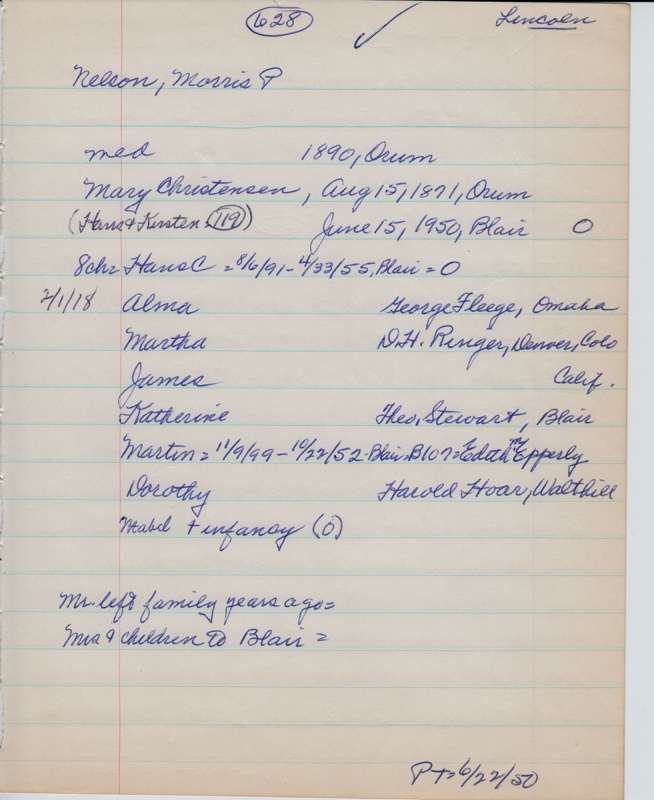 628 Lincoln
Nelson, Morris P
med 1890, Orum
Mary Christensen, Aug 15, 1871, Orum
(Hans & Kirsten 119) June 15, 1950, Blair O
8ch= Hans C = 8/6/91 - 4/33/55, Blair = O
2/1/18 Alma George Fleege, Omaha
Martha D.H. Ringer, Denver, Colo
James Calif.
Katherine Theo, Stewart, Blair
Martin = 11/9/99 - 10/22/52 - Blair, B107 = Edith M Epperly
Dorothy Harold Hoar, Walthill
Mabel + infancy (O)
Mr. left family years ago =
Mrs & children to Blair =
PT = 6/22/50